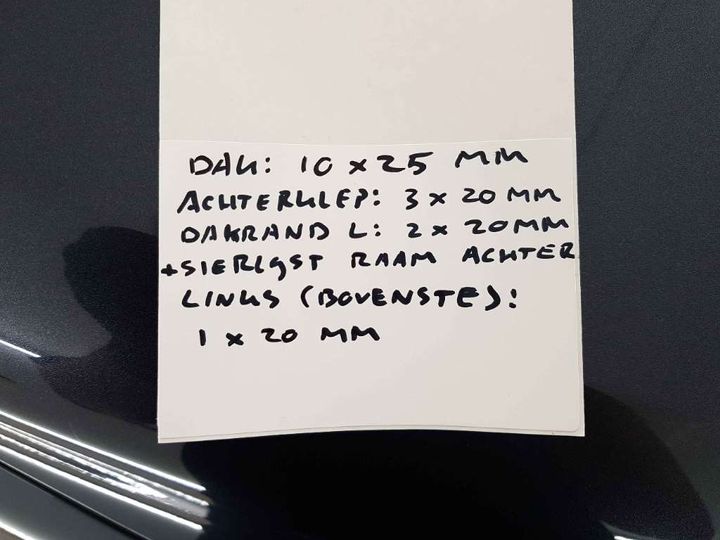 DAK: 10 x 25 MM
ACHTERKLEP: 3 x 20 MM
DAKRAND L: 2 x 20 MM
+SIERLYST RAAM ACHTER
LINKS (BOVENSTE):
1 x 20 MM